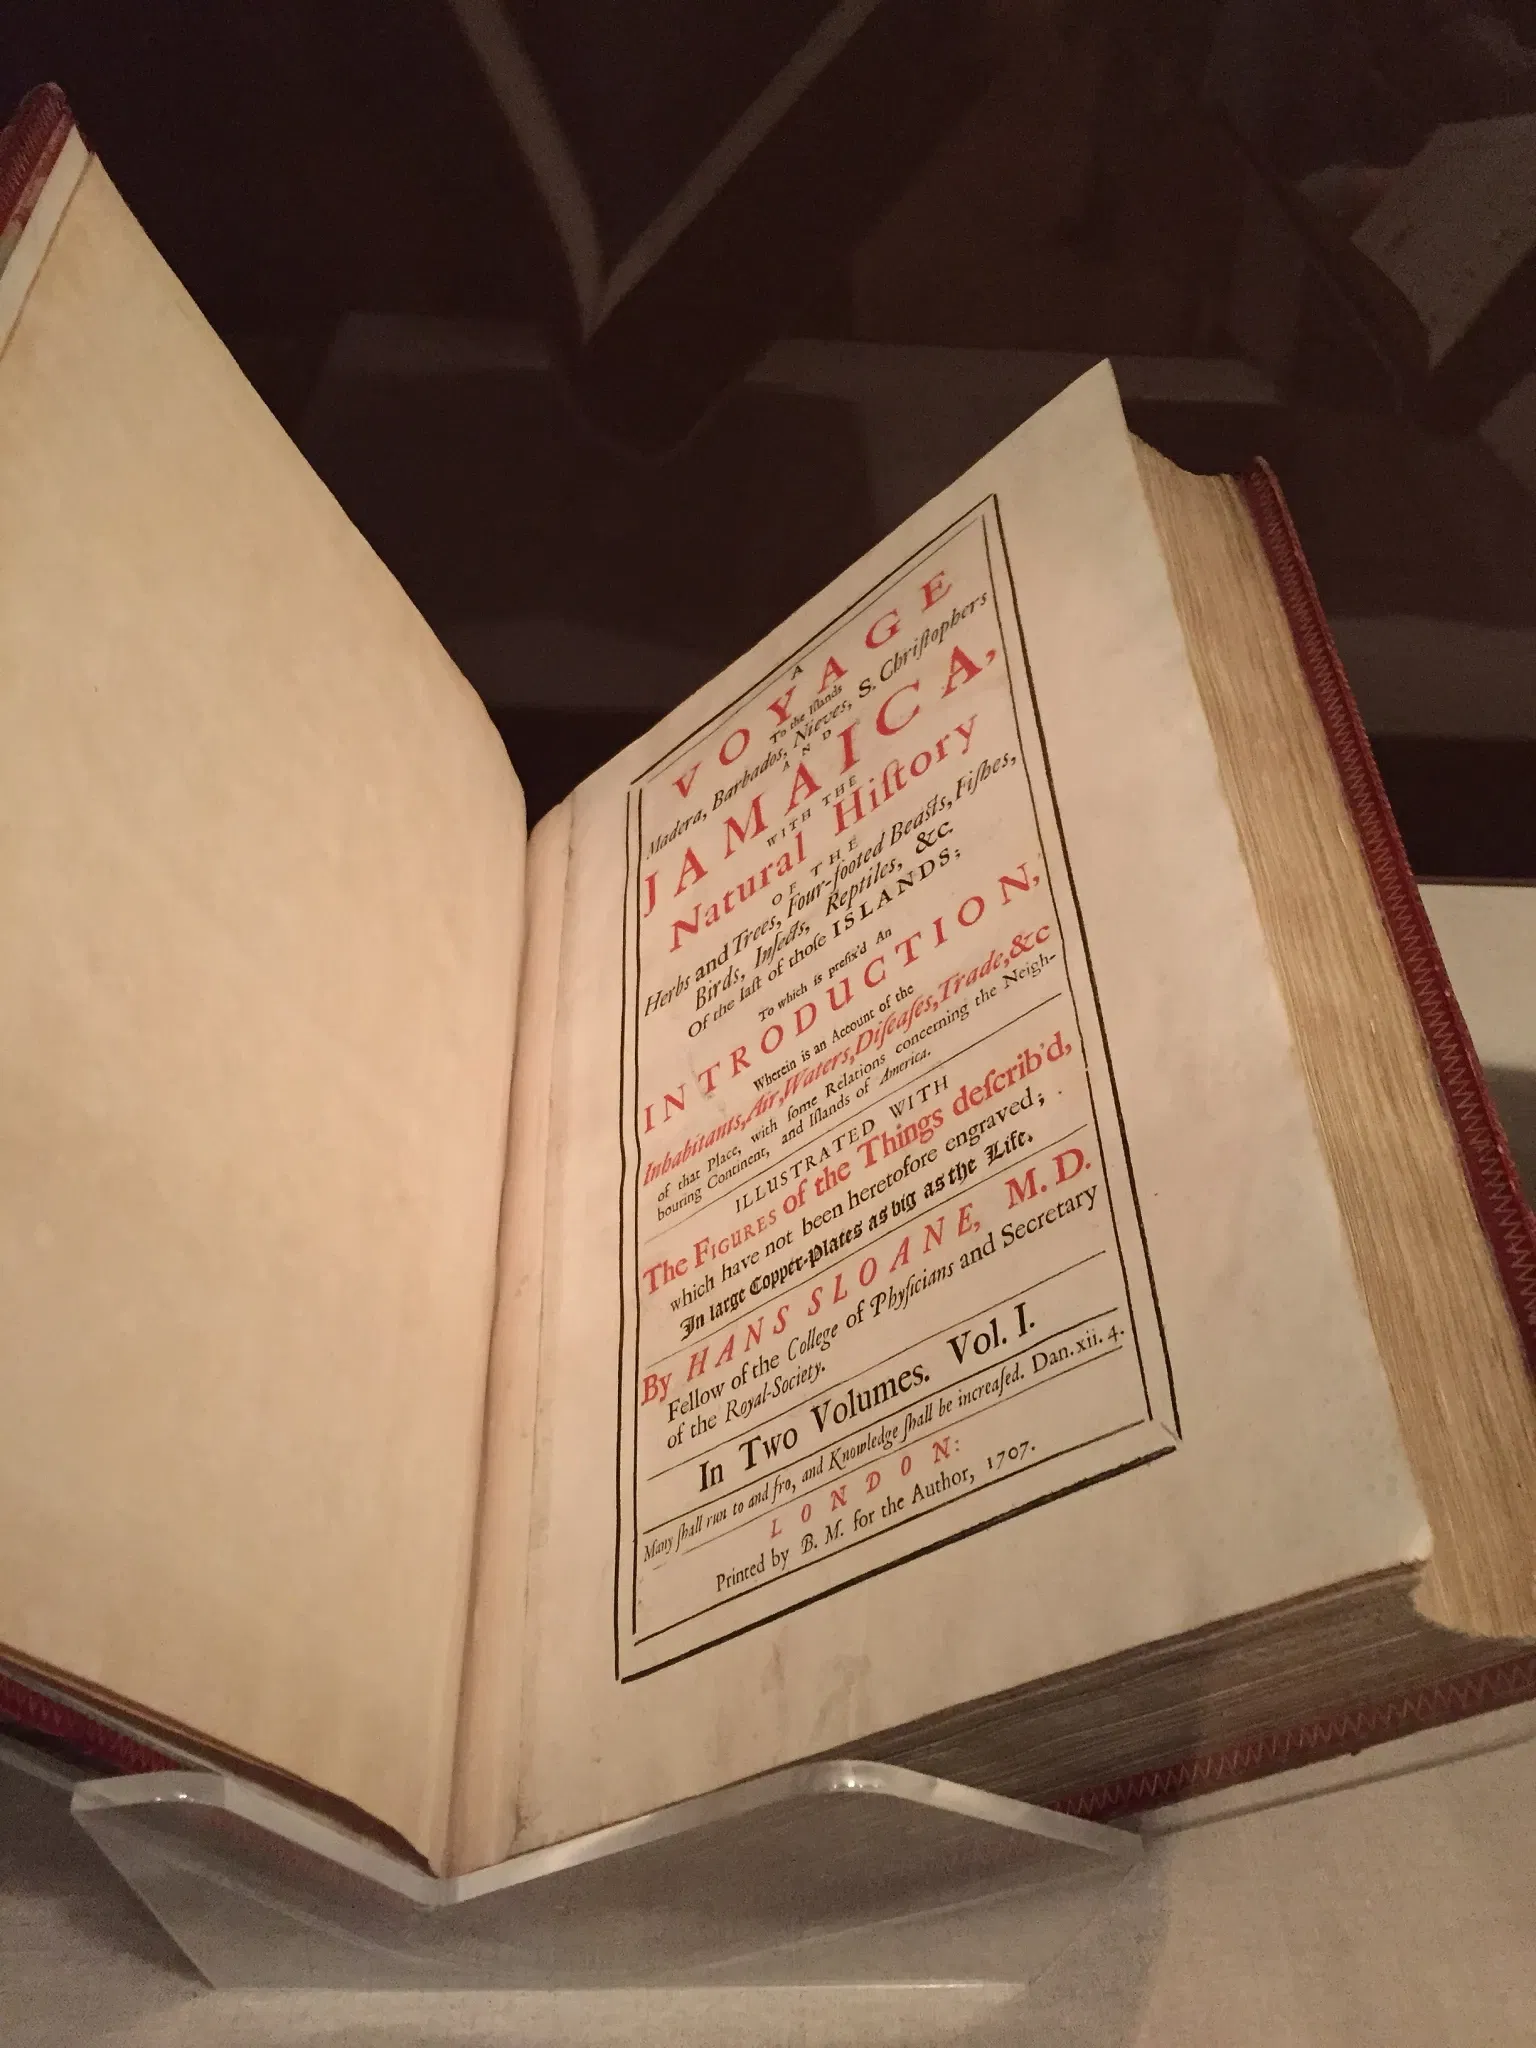 A
VOYAGE
To the Iſlands
Madera, Barbados, Nieves, S. Chriſtophers
AND
JAMAICA,
WITH THE
Natural Hiſtory
OF THE
Herbs and Trees, Four-footed Beaſts, Fiſhes,
Birds, Inſects, Reptiles, &c.
Of the laſt of thoſe ISLANDS;
To which is prefix'd An
INTRODUCTION,
Wherein is an Account of the
Inhabitants, Air, Waters, Diſeaſes, Trade, &c
of that Place, with ſome Relations concerning the Neigh-
bouring Continent, and Iſlands of America.
ILLUSTRATED WITH
The FIGURES of the Things deſcrib'd,
which have not been heretofore engraved;
In large Copper-Plates as big as the Life.
By HANS SLOANE, M. D.
Fellow of the College of Phyſicians and Secretary
of the Royal-Society.
In Two Volumes. Vol. I.
Many ſhall run to and fro, and Knowledge ſhall be increaſed. Dan. xii. 4.
LONDON:
Printed by B. M. for the Author, 1707.